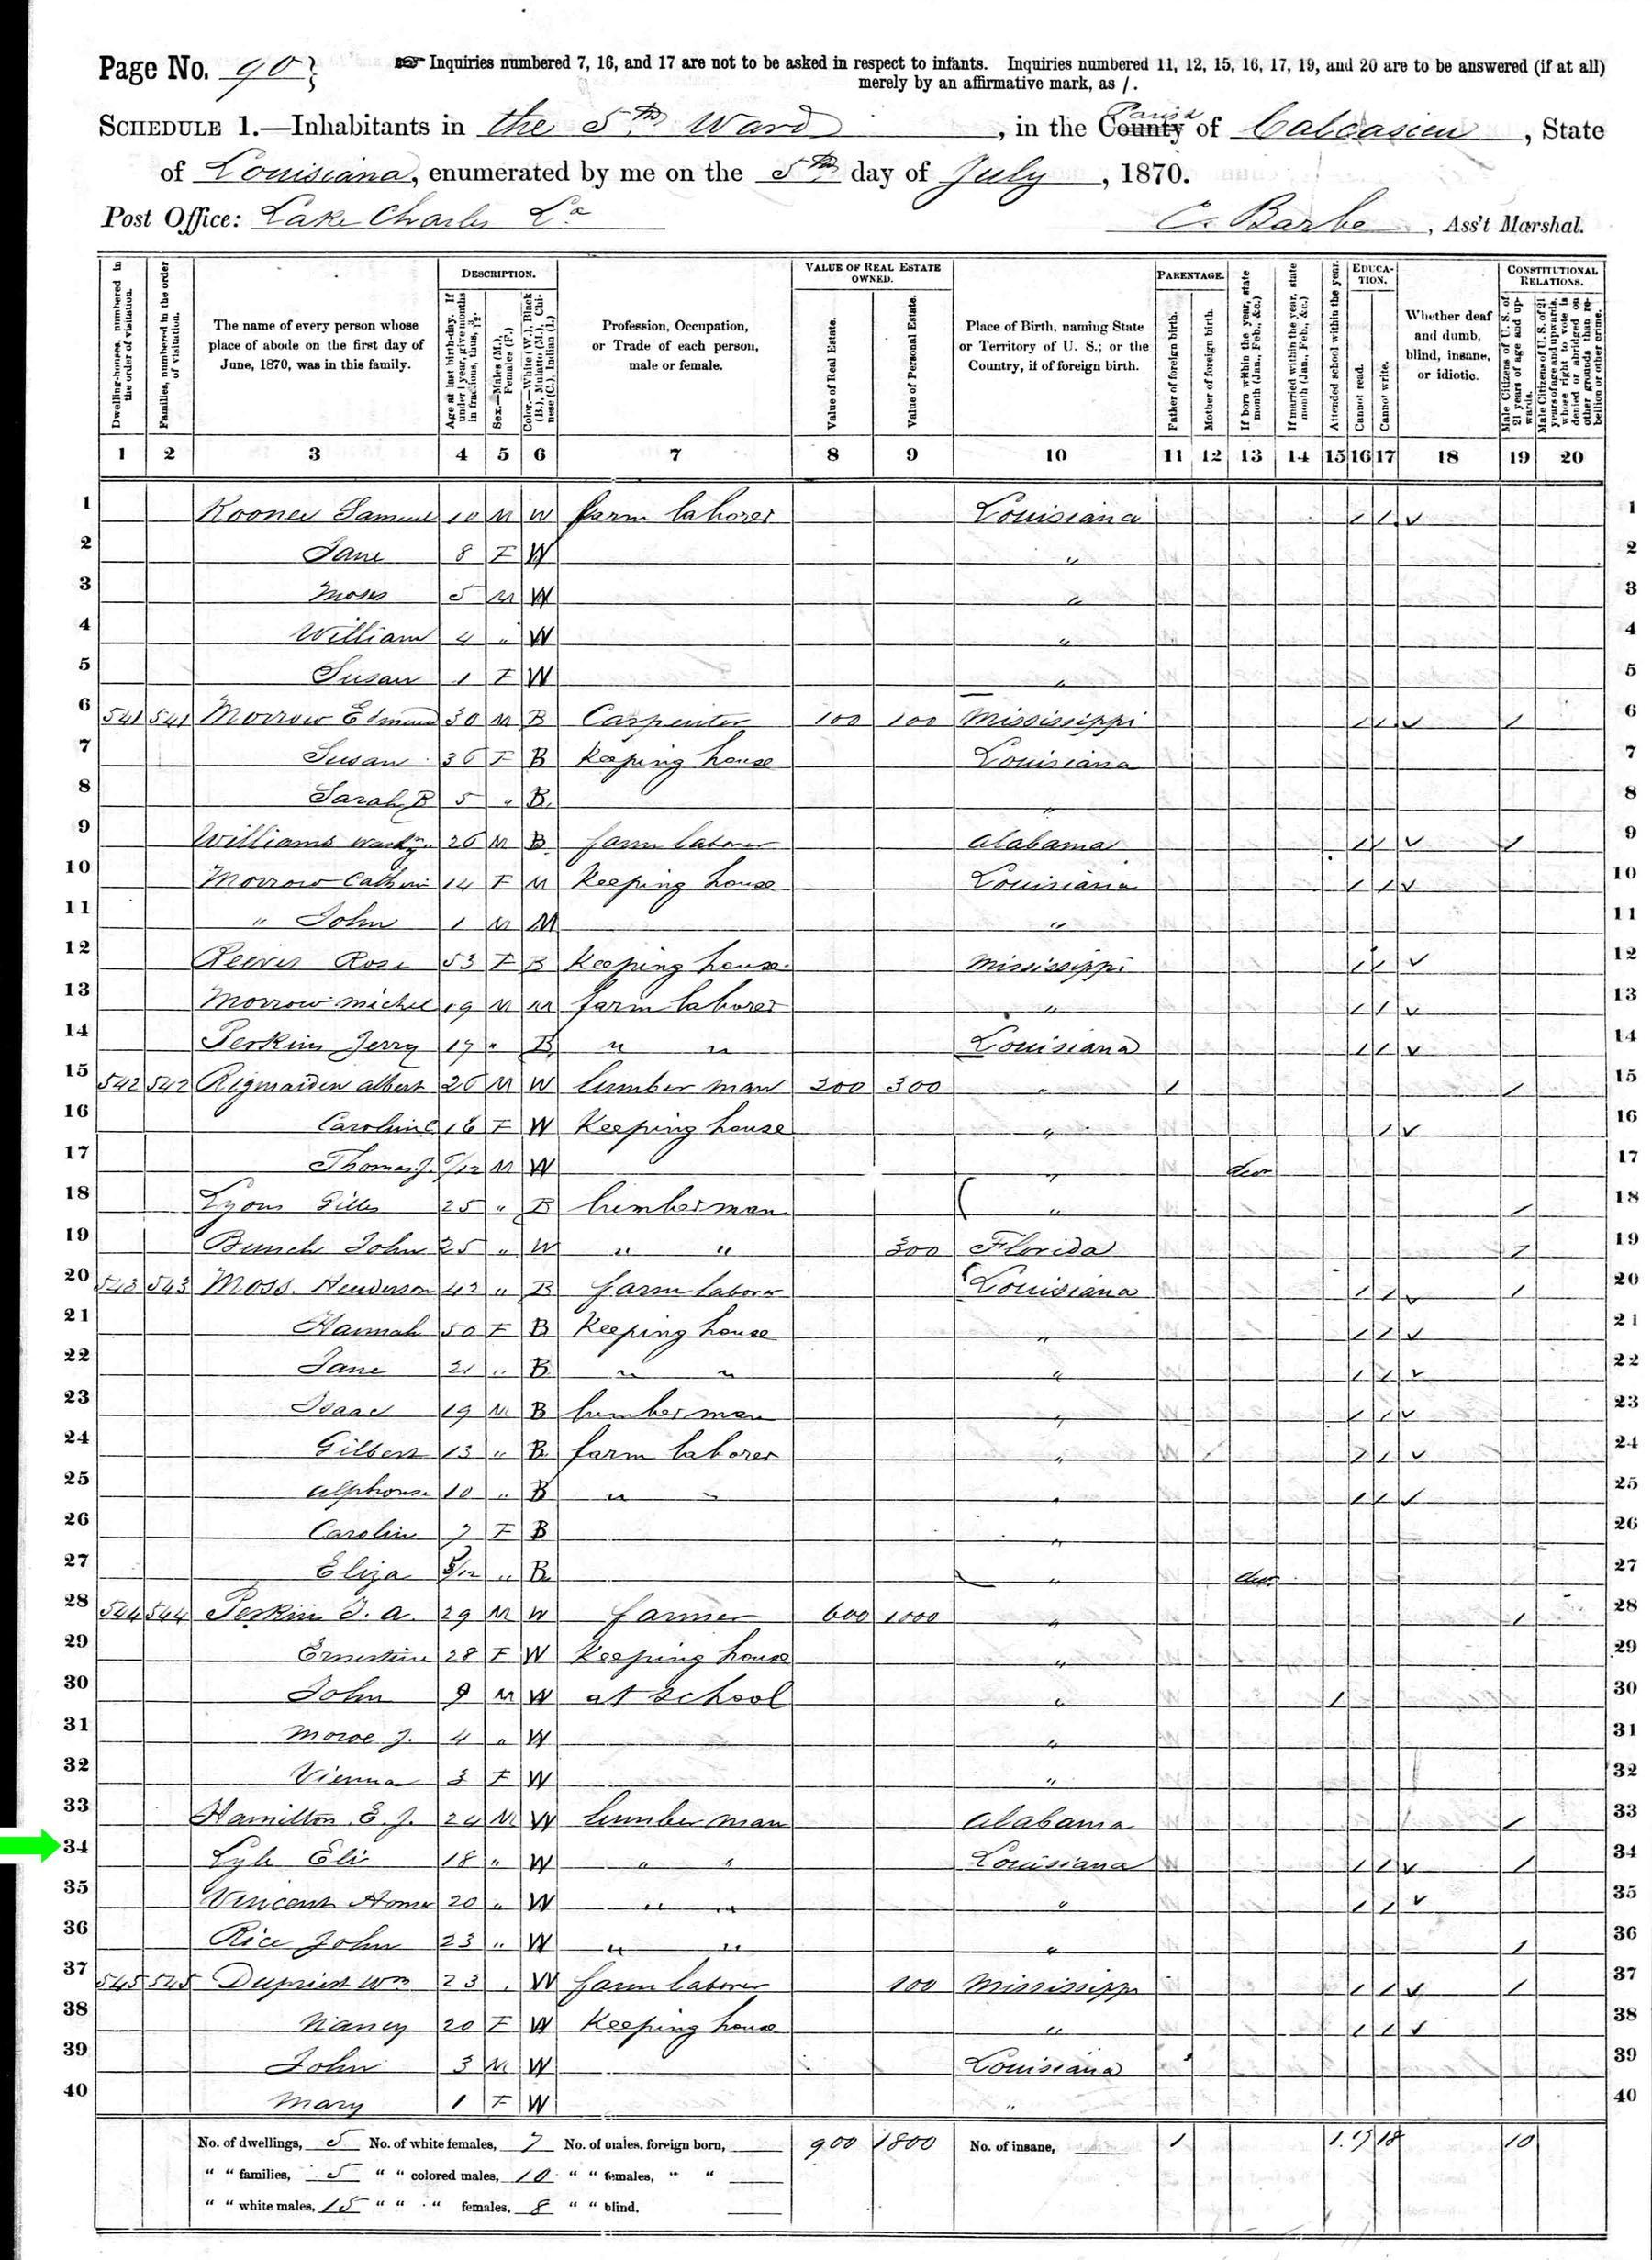 Page No. 90}
Inquiries numbered 7, 16, and 17 are not to be asked in respect to infants. Inquiries numbered 11, 12, 15, 16, 17, 19, and 20 are to be answered (if at all)
merely by an affirmative mark, as /.
SCHEDULE 1.—Inhabitants in the 5th Ward, in the County Parish of Calcasieu, State
of Louisiana, enumerated by me on the 5th day of July, 1870.
Post Office: Lake Charles La C. Barbe, Ass't Marshal.
Dwelling-houses, numbered in the order of visitation.
Families, numbered in the order of visitation.
The name of every person whose place of abode on the first day of June, 1870, was in this family.
DESCRIPTION.
Age at last birth-day. If under 1 year, give months in fractions, thus, 3/12.
Sex.—Males (M.), Females (F.)
Color.—White (W.), Black (B.), Mulatto (M.), Chinese (C.), Indian (I.)
Profession, Occupation, or Trade of each person, male or female.
VALUE OF REAL ESTATE OWNED.
Value of Real Estate.
Value of Personal Estate.
Place of Birth, naming State or Territory of U. S.; or the Country, if of foreign birth.
PARENTAGE.
Father of foreign birth.
Mother of foreign birth.
If born within the year, state month (Jan., Feb., &c.)
If married within the year, state month (Jan., Feb., &c.)
Attended school within the year.
EDUCATION.
Cannot read.
Cannot write.
Whether deaf and dumb, blind, insane, or idiotic.
CONSTITUTIONAL RELATIONS.
Male Citizens of U. S. of 21 years of age and upwards.
Male Citizens of U. S. of 21 years of age and upwards, whose right to vote is denied or abridged on other grounds than rebellion or other crime.
1 2 3 4 5 6 7 8 9 10 11 12 13 14 15 16 17 18 19 20
1 Samuel 10 M W farm laborer Louisiana / / ✓ 1
2 Jane 8 F W " 2
3 Moses 5 M W " 3
4 William 4 " W " 4
5 Susan 1 F W " 5
6 541 541 Morrow Edmund 30 M B Carpenter 100 100 Mississippi / / ✓ / 6
7 Susan 36 F B Keeping house Louisiana 7
8 Sarah B 5 " B " 8
9 Williams 26 M B farm laborer Alabama / / ✓ / 9
10 Morrow Catherin 14 F M Keeping house Louisiana / / ✓ 10
11 " John 1 M M " 11
12 Reeves Rose 53 F B Keeping house Mississippi / / ✓ 12
13 Morrow Michel 19 M M farm laborer " / / ✓ 13
14 Perkins Jerry 17 " B " " Louisiana / / ✓ 14
15 542 542 Rigmaiden Albert 26 M W lumber man 200 300 " / / 15
16 Caroline 16 F W Keeping house " / ✓ 16
17 Thomas J. /12 M W " 17
18 Lyons Gilles 25 " B lumberman " / 18
19 Bunch John 25 " W " " 300 Florida / 19
20 543 543 Moss Henderson 42 " B farm laborer Louisiana / / ✓ / 20
21 Hannah 50 F B Keeping house " / / ✓ 21
22 Jane 21 " B " " " / / ✓ 22
23 Isaac 19 M B lumber man " / / ✓ 23
24 Gilbert 13 " B farm laborer " / / ✓ 24
25 Alphonse 10 " B " " " / / ✓ 25
26 Carolin 7 F B " 26
27 Eliza /12 " B " 27
28 544 544 Perkins J. A. 29 M W farmer 600 1000 " / 28
29 Ernestine 28 F W Keeping house " 29
30 John 9 M W at school " / 30
31 J. 4 " W " 31
32 Vienna 3 F W " 32
33 Hamilton E. J. 24 M W lumber man Alabama / 33
34 Lyle Eli 18 " W " " Louisiana / / ✓ / 34
35 Vincent Homer 20 " W " " " / / ✓ 35
36 Rice John 23 " W " " " / 36
37 545 545 Dupriest Wm 23 " W farm laborer 100 Mississippi / / ✓ / 37
38 Nancy 20 F W Keeping house " / / ✓ 38
39 John 3 M W Louisiana 39
40 Mary 1 F W " 40
No. of dwellings, 5 No. of white females, 7 No. of males, foreign born, 900 1800 No. of insane, 1 18 10
" " families, 5 " " colored males, 10 " " females, " "
" " white males, 15 " " " females, 8 " " blind,